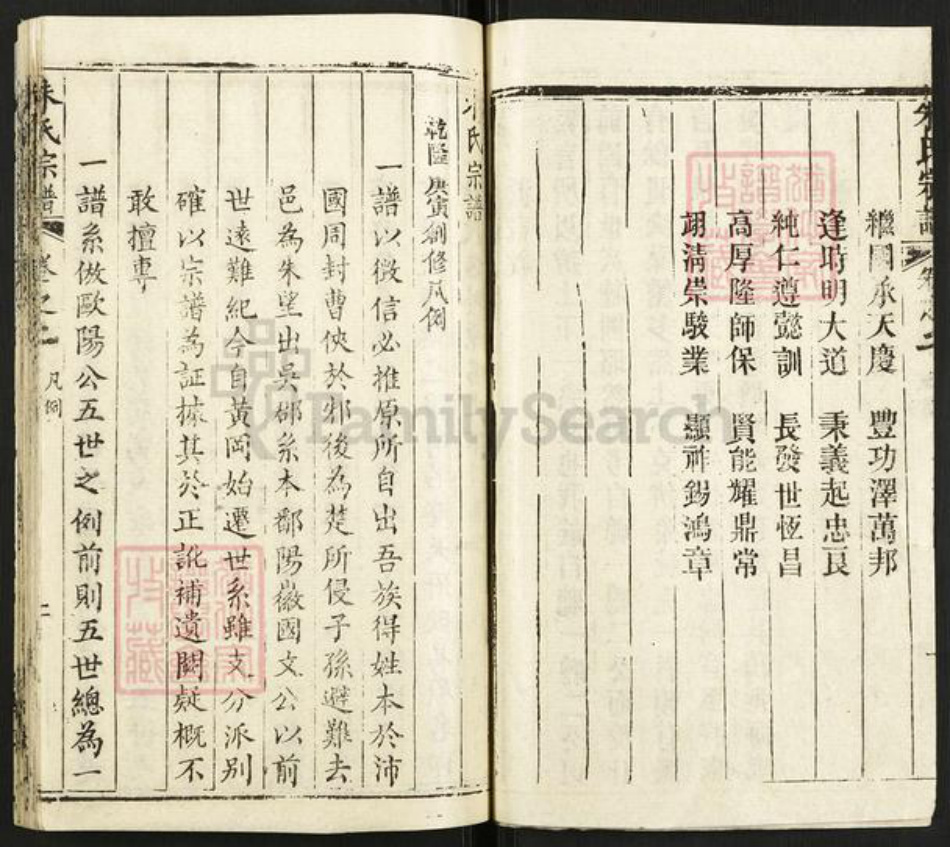 朱氏宗譜
繼國承天慶 豐功澤萬邦
逢時明大道 秉義起忠良
純仁遵懿訓 長發世恆昌
高厚隆師保 賢能耀鼎常
翊清崇駿業 顯祚錫鴻章
朱氏宗譜
乾隆庚寅創修凡例
一譜以徵信必推原所自出吾族得姓本於沛
國周封曹俠於邾後為楚所侵子孫避難去
邑為朱望出吳郡系本鄱陽徽國文公以前
世遠難紀今自黃岡始遷世系雖支分派別
確以宗譜為証據其於正訛補遺闕疑概不
敢擅專
一譜系倣歐陽公五世之例前則五世總為一
朱氏宗譜 卷之二 凡例 二
FamilySearch